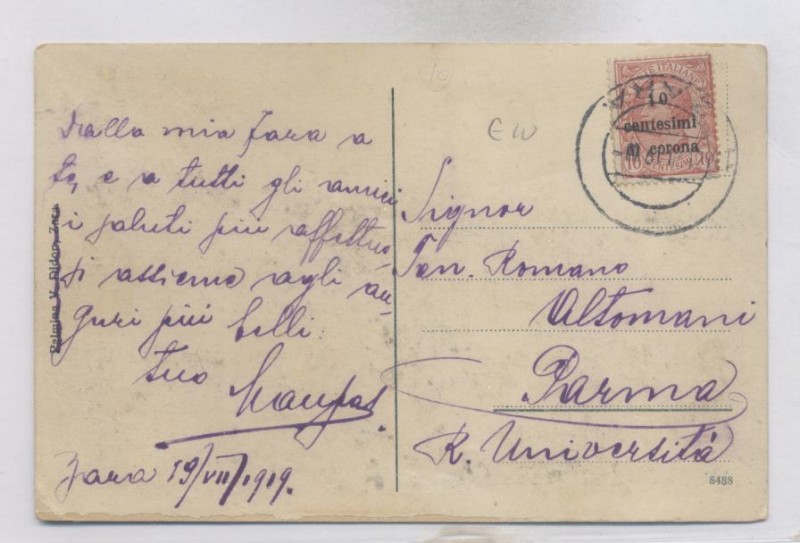 Dalla mia Zara a
te, e a tutti gli amici
i saluti più affettuo-
si assieme agli au-
guri più belli.
Tuo
Zara 19/VII/1919.
Palmira V. Zara
EW
10
centesimi
di corona
Signor
Ten. Romano
Altomani
Parma
R. Università
8488